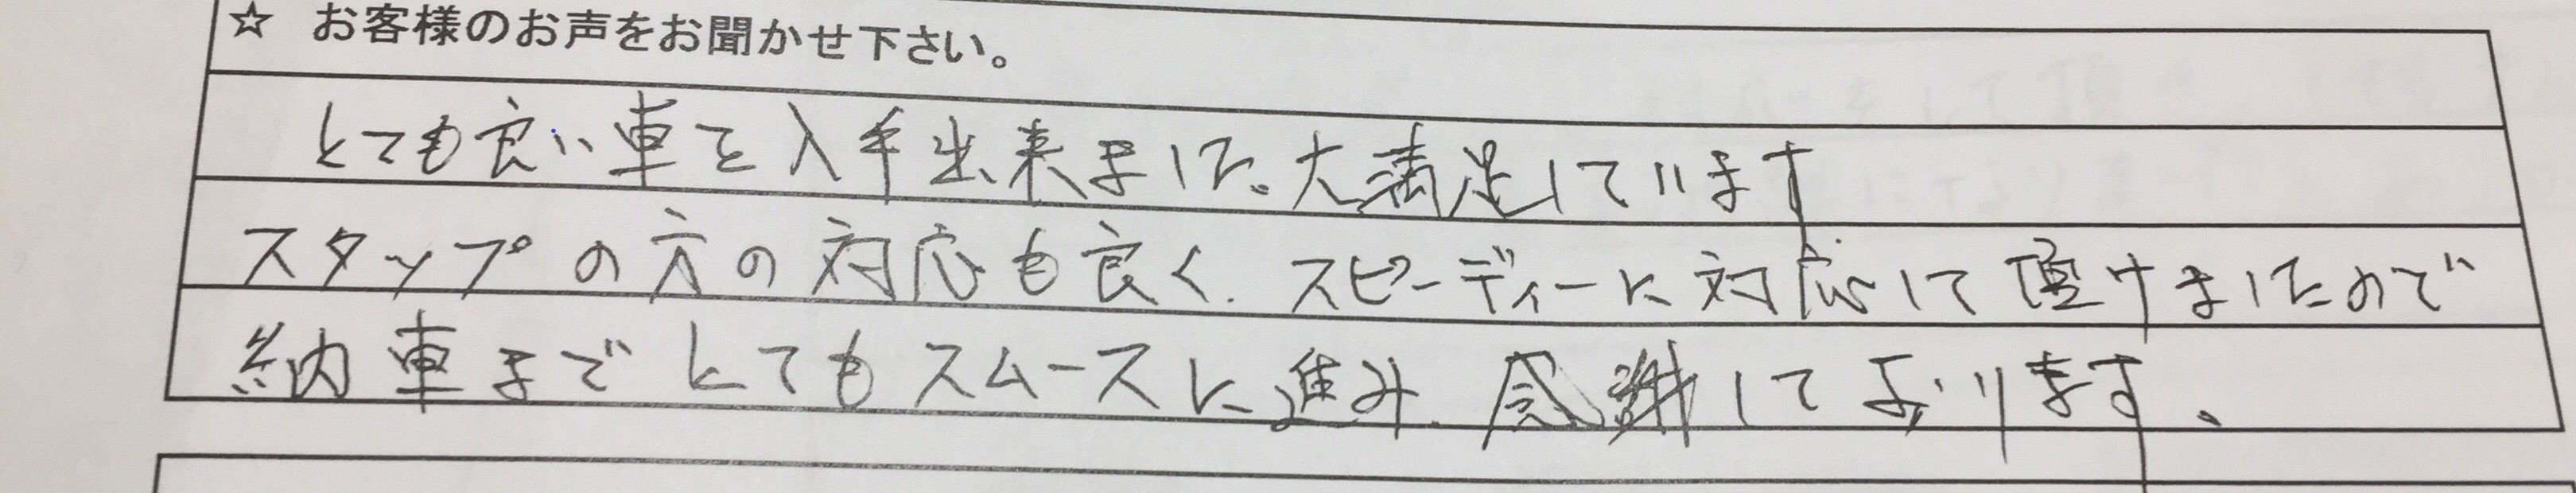 ☆ お客様のお声をお聞かせ下さい。
とても良い車を入手出来ました。大満足しています
スタップの方の対応も良く、スピーディーに対応して頂けましたので
納車までとてもスムースに進み、感謝しております、